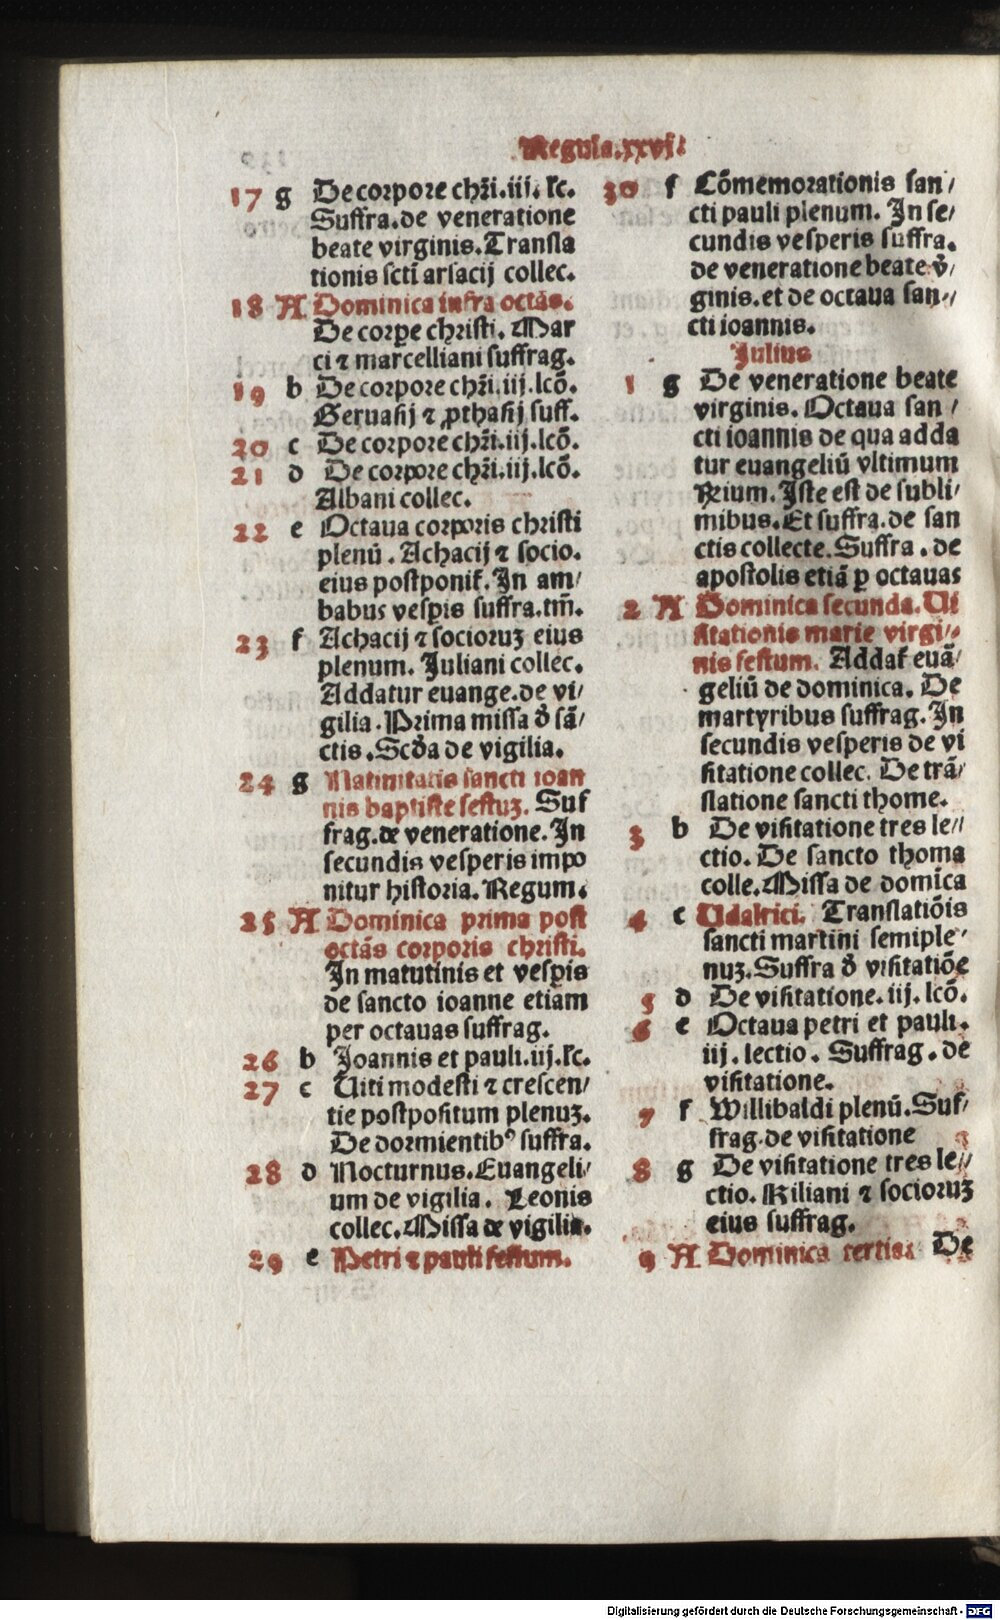 Regula.xxvi.
17 g De corpore chr̄i.iij. lc.
Suffra.de veneratione
beate virginis.Transla
tionis sctī arsacij collec.
18 A Dominica infra octās.
De corpe christi. Mar
ci ⁊ marcelliani suffrag.
19 b De corpore chr̄i.iij.lcō.
Geruasij ⁊ ꝓthasij suff.
20 c De corpore chr̄i.iij.lcō.
21 d De corpore chr̄i.iij.lcō.
Albani collec.
22 e Octaua corporis christi
plenū. Achacij ⁊ socio.
eius postponit̄. In am/
babus vesꝑis suffra.tm̄.
23 f Achacij ⁊ socioruꝫ eius
plenum. Juliani collec.
Addatur euange.de vi/
gilia. Prima missa d̄ sā/
ctis. Scd̄a de vigilia.
24 g Natiuitatis sancti ioan
nis baptiste festuꝫ. Suf
frag.de veneratione. In
secundis vesperis impo
nitur historia. Regum.
25 A Dominica prima post
octās corporis christi.
In matutinis et vesꝑis
de sancto ioanne etiam
per octauas suffrag.
26 b Joannis et pauli.iij.lc.
27 c Uiti modesti ⁊ crescen/
tie postpositum plenuꝫ.
De dormientibꝰ suffra.
28 d Nocturnus. Euangeli/
um de vigilia. Leonis
collec. Missa de vigilia.
29 e Petri ⁊ pauli festum.
30 f Cōmemorationis san/
cti pauli plenum. In se/
cundis vesperis suffra.
de veneratione beate v̄/
ginis. et de octaua san/
cti ioannis.
Julius
1 g De veneratione beate
virginis. Octaua san/
cti ioannis de qua adda
tur euangeliū vltimum
℟ium. Iste est de subli/
mibus. Et suffra. de san
ctis collecte. Suffra. de
apostolis etiā ꝑ octauas
2 A Dominica secunda. Ui
sitationis marie virgi/
nis festum. Addat̄ euā/
geliū de dominica. De
martyribus suffrag. In
secundis vesperis de vi
sitatione collec. De trā/
slatione sancti thome.
3 b De visitatione tres le//
ctio. De sancto thoma
colle. Missa de domīca
4 c Udalrici. Translatiōis
sancti martini semiple/
nuꝫ. Suffra d̄ visitatiōe
5 d De visitatione. iij. lcō.
6 e Octaua petri et pauli.
iij. lectio. Suffrag. de
visitatione.
7 f Willibaldi plenū. Suf/
frag. de visitatione
8 g De visitatione tres le//
ctio. Kiliani ⁊ socioruꝫ
eius suffrag.
9 A Dominica tertia: De
Digitalisierung gefördert durch die Deutsche Forschungsgemeinschaft - DFG